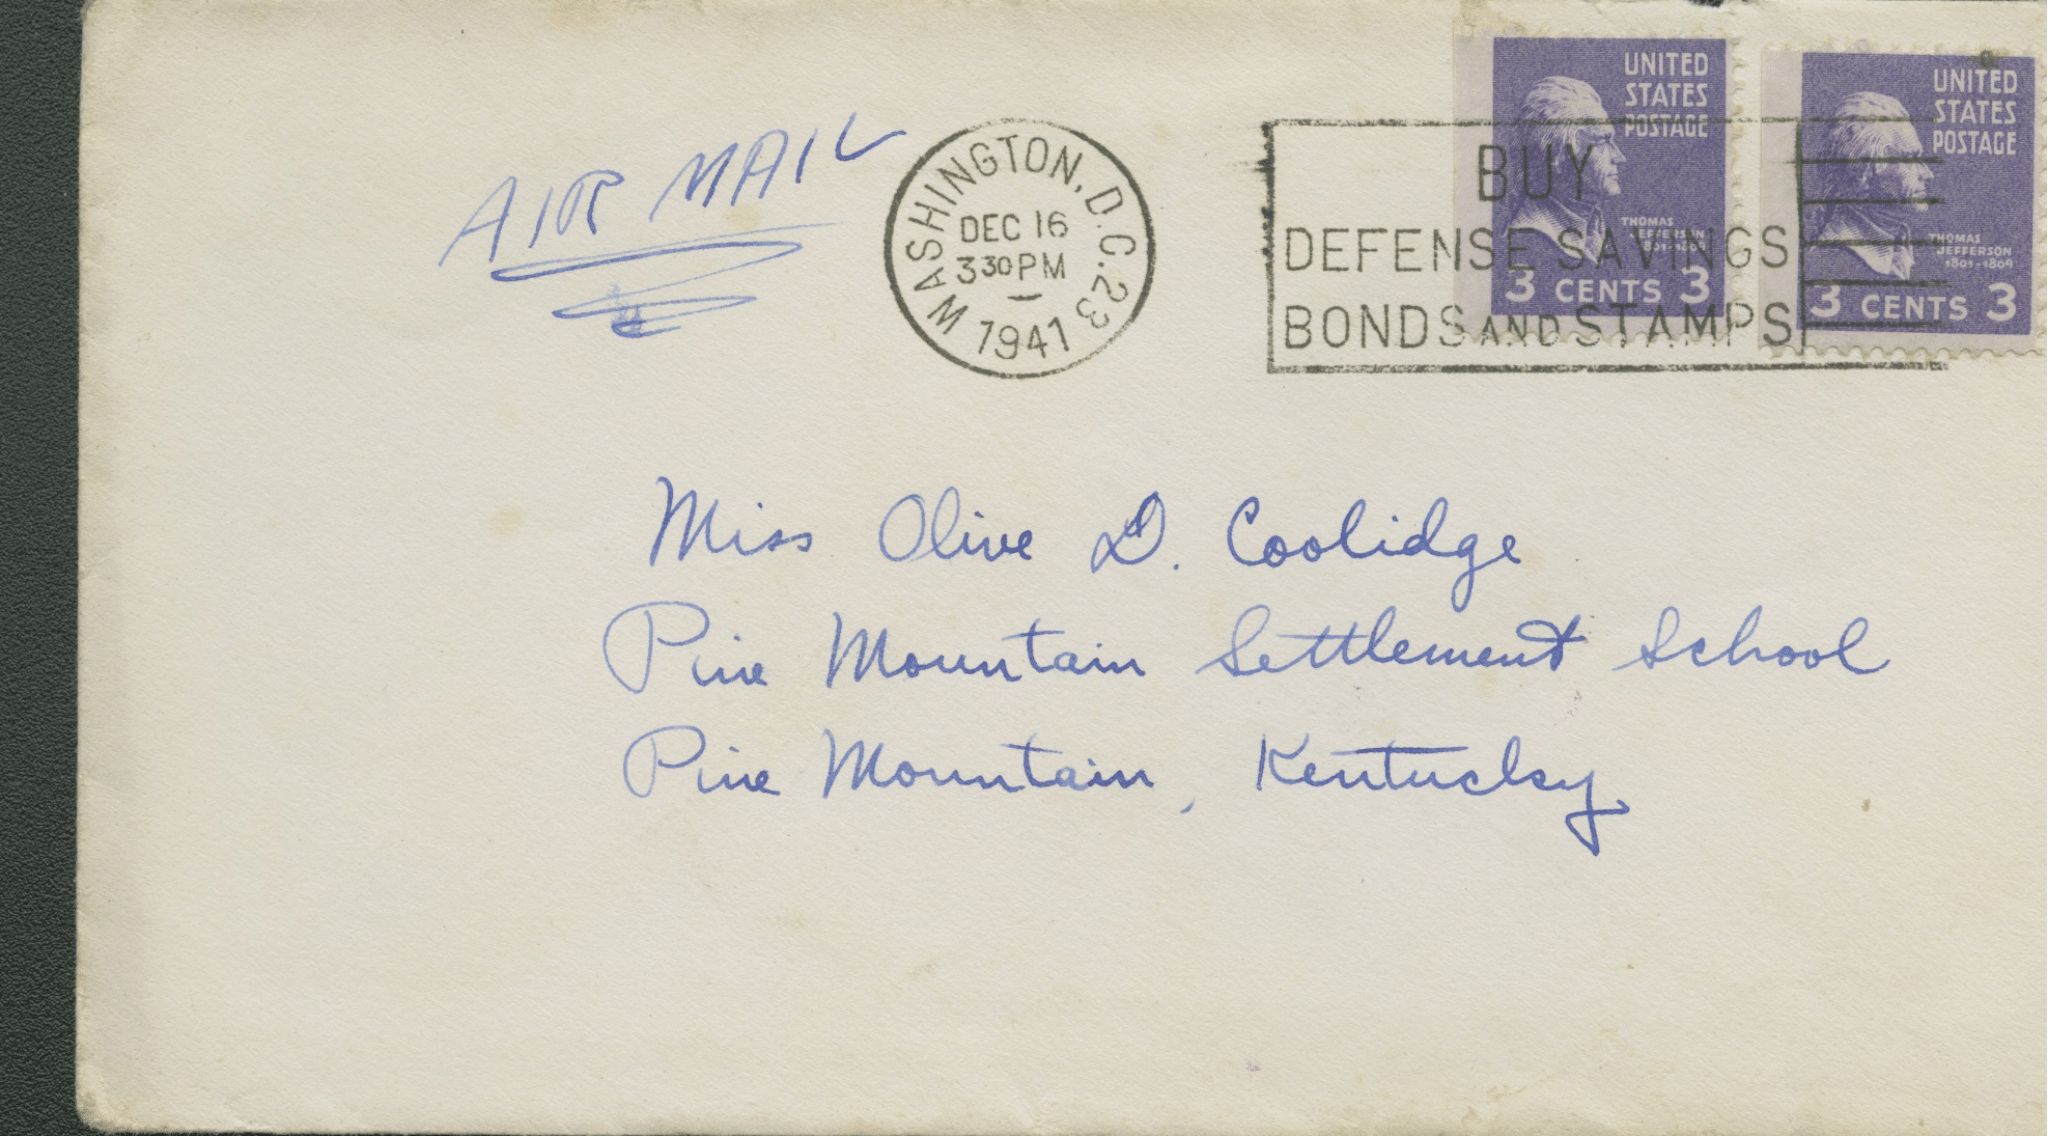 AIR MAIL
WASHINGTON, D.C. 23
DEC 16
3 30 PM
1941
BUY
DEFENSE SAVINGS
BONDS AND STAMPS
UNITED
STATES
POSTAGE
THOMAS
JEFFERSON
1801-1809
3 CENTS 3
UNITED
STATES
POSTAGE
THOMAS
JEFFERSON
1801-1809
3 CENTS 3
Miss Olive D. Coolidge
Pine Mountain Settlement School
Pine Mountain, Kentucky